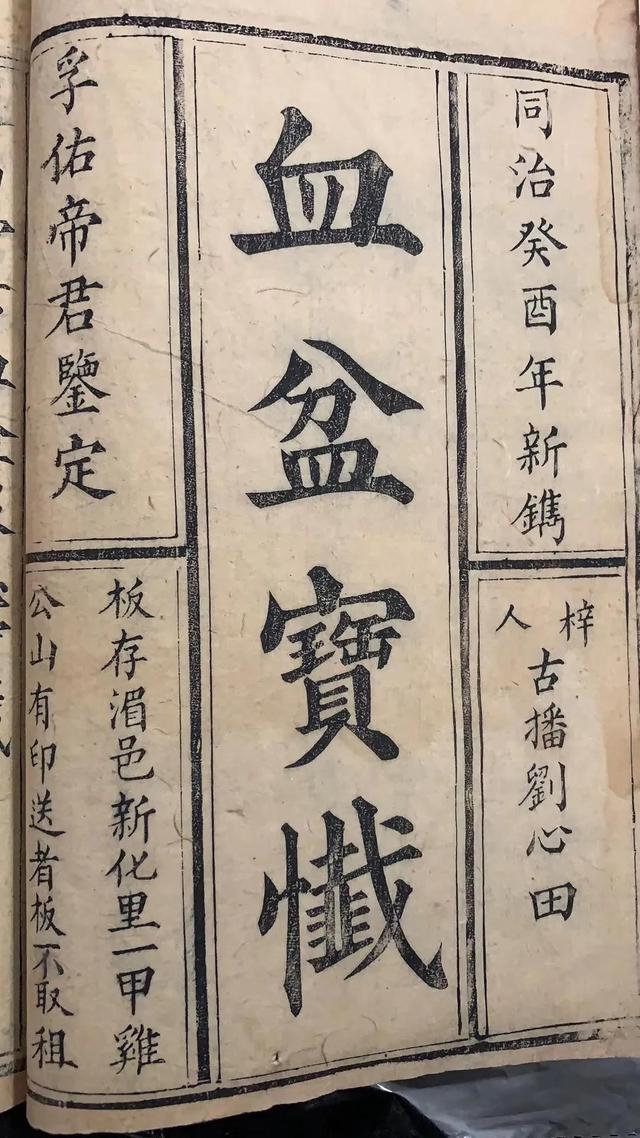 同治癸酉年新鐫
梓人
古播劉心田
血盆寶懺
孚佑帝君鑒定
板存湄邑新化里一甲雞
公山有印送者板不取租